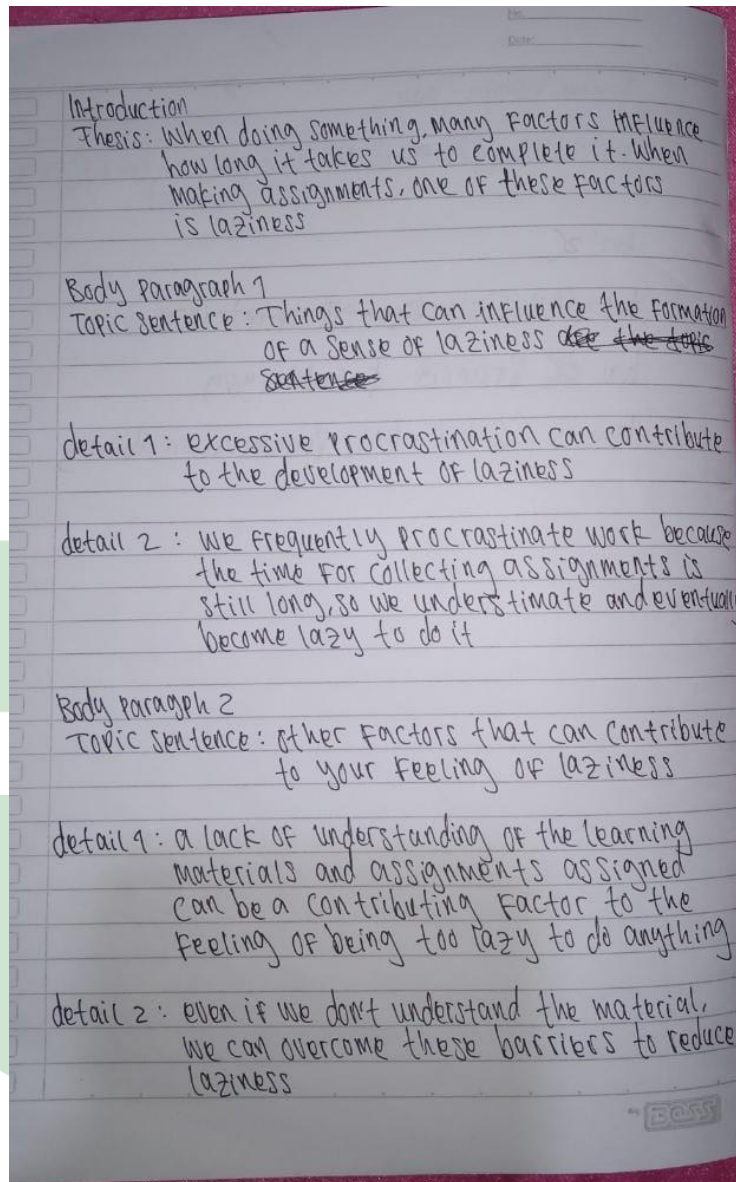 No.
Date:
Introduction
Thesis: When doing something, many factors influence
how long it takes us to complete it. When
making assignments, one of these factors
is laziness
Body Paragraph 1
Topic Sentence: Things that can influence the formation
of a sense of laziness the topic
sentence
detail 1: excessive procrastination can contribute
to the development of laziness
detail 2: we frequently procrastinate work because
the time for collecting assignments is
still long, so we understimate and eventuall
become lazy to do it
Body Paragph 2
Topic Sentence: other factors that can contribute
to your feeling of laziness
detail 1: a lack of understanding of the learning
materials and assignments assigned
can be a contributing factor to the
feeling of being too lazy to do anything
detail 2: even if we don't understand the material,
we can overcome these barriers to reduce
laziness
BOSS